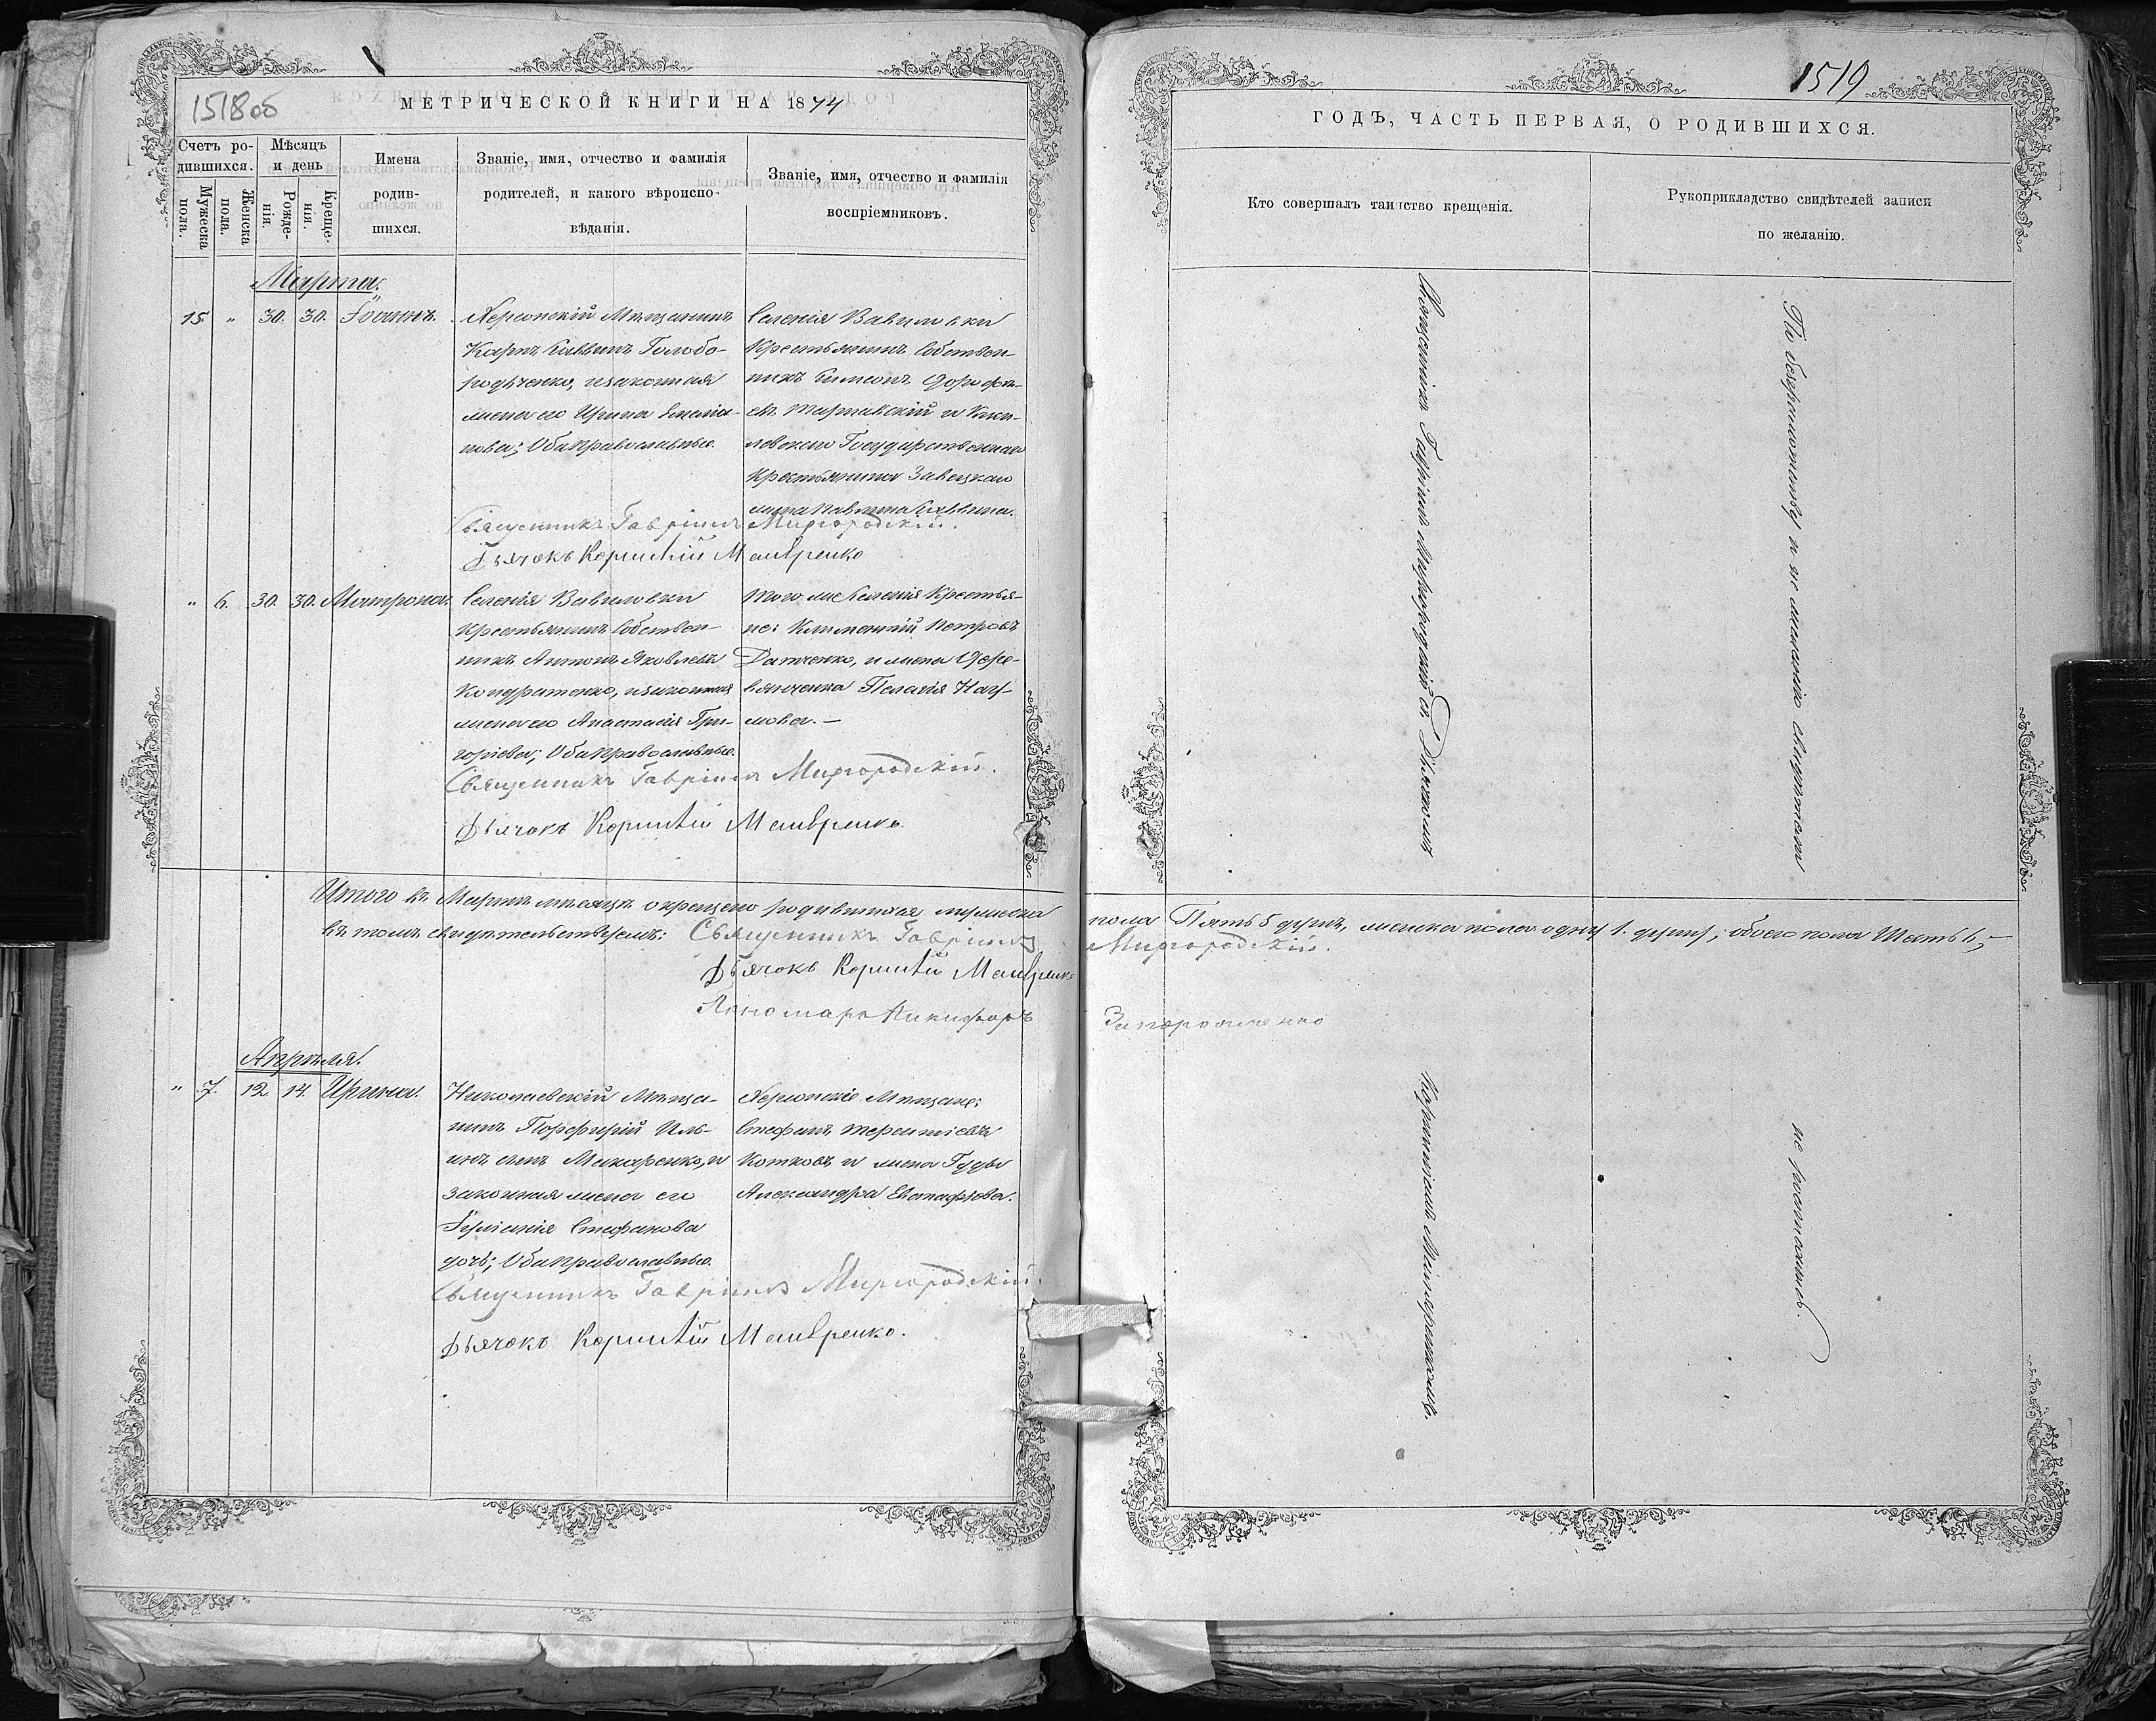 1518об
МЕТРИЧЕСКОЙ КНИГИ НА 1874
Счетъ ро-
дившихся.
Мужеска пола.
Женска пола.
Мѣсяцъ
и день
Рожде-
нія.
Креще-
нія.
Имена
родив-
шихся.
Званіе, имя, отчество и фамилія
родителей, и какого вѣроиспо-
вѣданія.
Званіе, имя, отчество и фамилія
воспріемниковъ.
Марта.
15. " 30. 30. Іоаннъ.
Херсонскій Мѣщанинъ
Карпъ Саввинъ Голобо-
родченко, и законная
жена его Ирина
нова; Оба православные.
Селенія Вавиловки
Крестьянинъ Собствен-
никъ Симеонъ Дорофе-
евъ и
Государственнаго
Крестьянина
жена
Священникъ Гавріилъ Миргородскій.
Дьячокъ Корнилій
" 6. 30. 30. Матрона.
Селенія Вавиловки
Крестьянинъ Собствен-
никъ Антонъ Яковлевъ
Кондратенко, и законная
жена его Анастасія Гри-
горіева; Оба православные.
Того же Селенія Крестья-
не: Климентій Петровъ
и жена
Пелагія Нау-
мова. —
Священникъ Гавріилъ Миргородскій.
Дьячокъ Корнилій
Итого въ Мартѣ мѣсяцѣ окрещено родившихся мужеска
въ томъ свидѣтельствуемъ: Священникъ Гавріилъ
Дьячокъ Корнилій
Пономарь Никифоръ
Апрѣля.
" 7. 12 14. Ирина.
Николаевскій Мѣща-
нинъ Порфирій Иль-
инъ сынъ Макаренко, и
законная жена его
Іуліанія Стефанова
дочь; Оба православные.
Херсонскіе Мѣщане:
Стефанъ Терентіевъ
Котковъ и жена Гуды
Александра Евстафіева.
Священникъ Гавріилъ Миргородскій.
Дьячокъ Корнилій
1519
ГОДЪ, ЧАСТЬ ПЕРВАЯ, О РОДИВШИХСЯ.
Кто совершалъ таинство крещенія.
Рукоприкладство свидѣтелей записи
по желанію.
Священникъ Гавріилъ Миргородскій съ Дьячкомъ
По безграмотству и не желанію свидѣтели
пола Пять 5 душъ, женска пола одну 1. душу; обоего пола Шесть 6,
Миргородскій.
Запорожченко
Корниліемъ
не росписались.